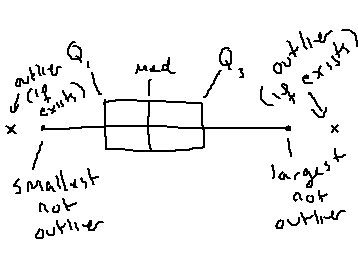 outlier
(if
exists)
x
Q1
med
Q3
outlier
(if
exists)
x
smallest
not
outlier
largest
not
outlier